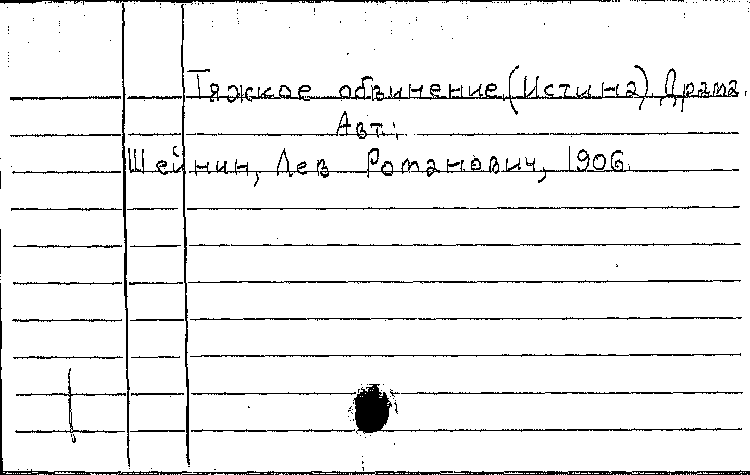 Тяжкое обвинение (Истина). Драма.
Авт.:
Шейнин, Лев Романович, 1906.